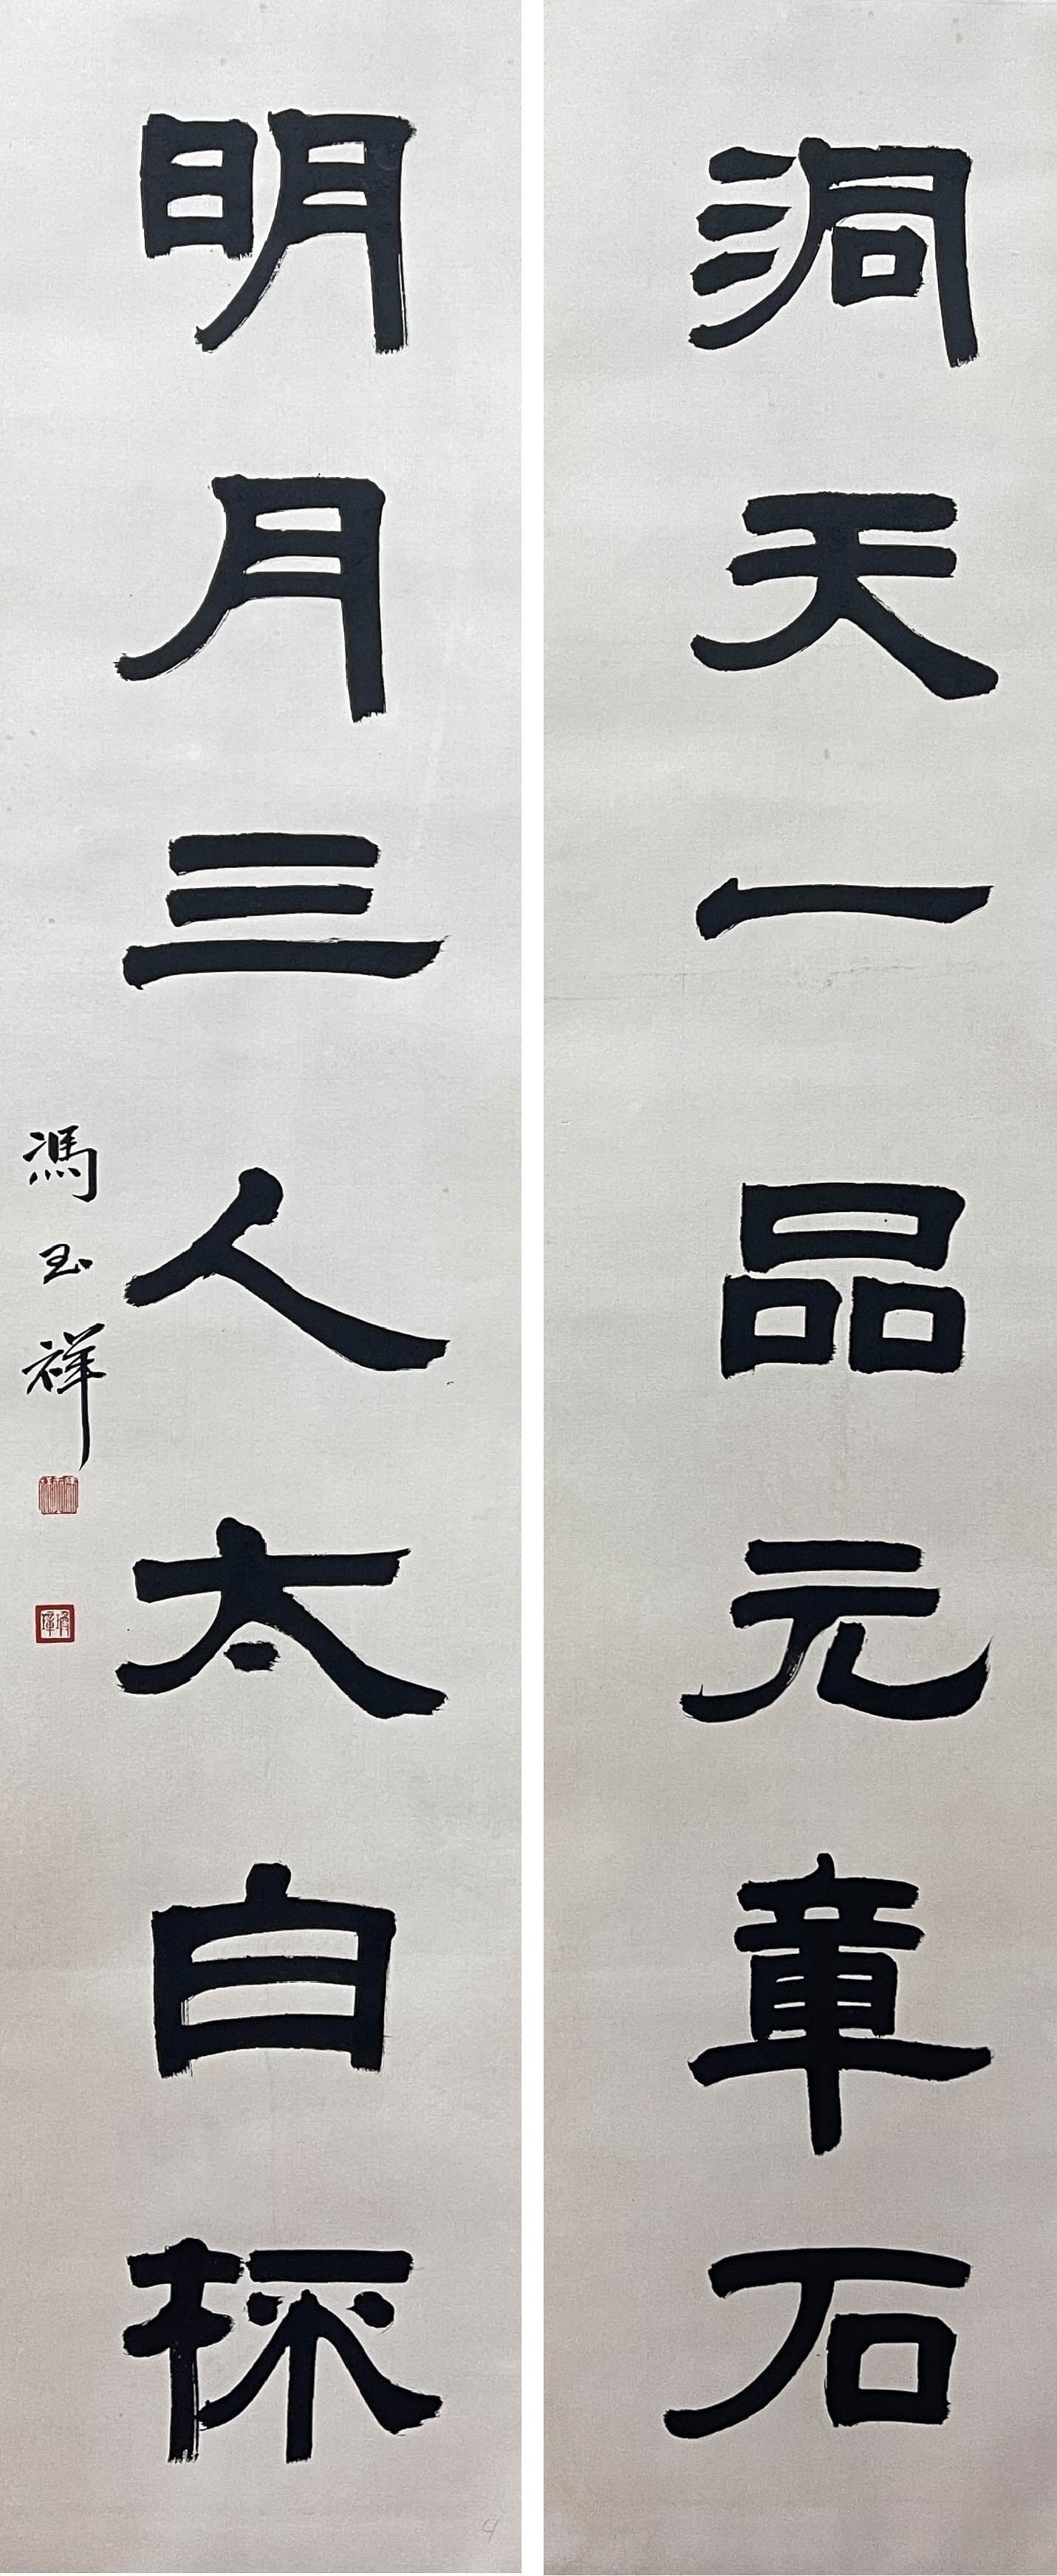 洞天一品元章石
明月三人太白杯
馮玉祥